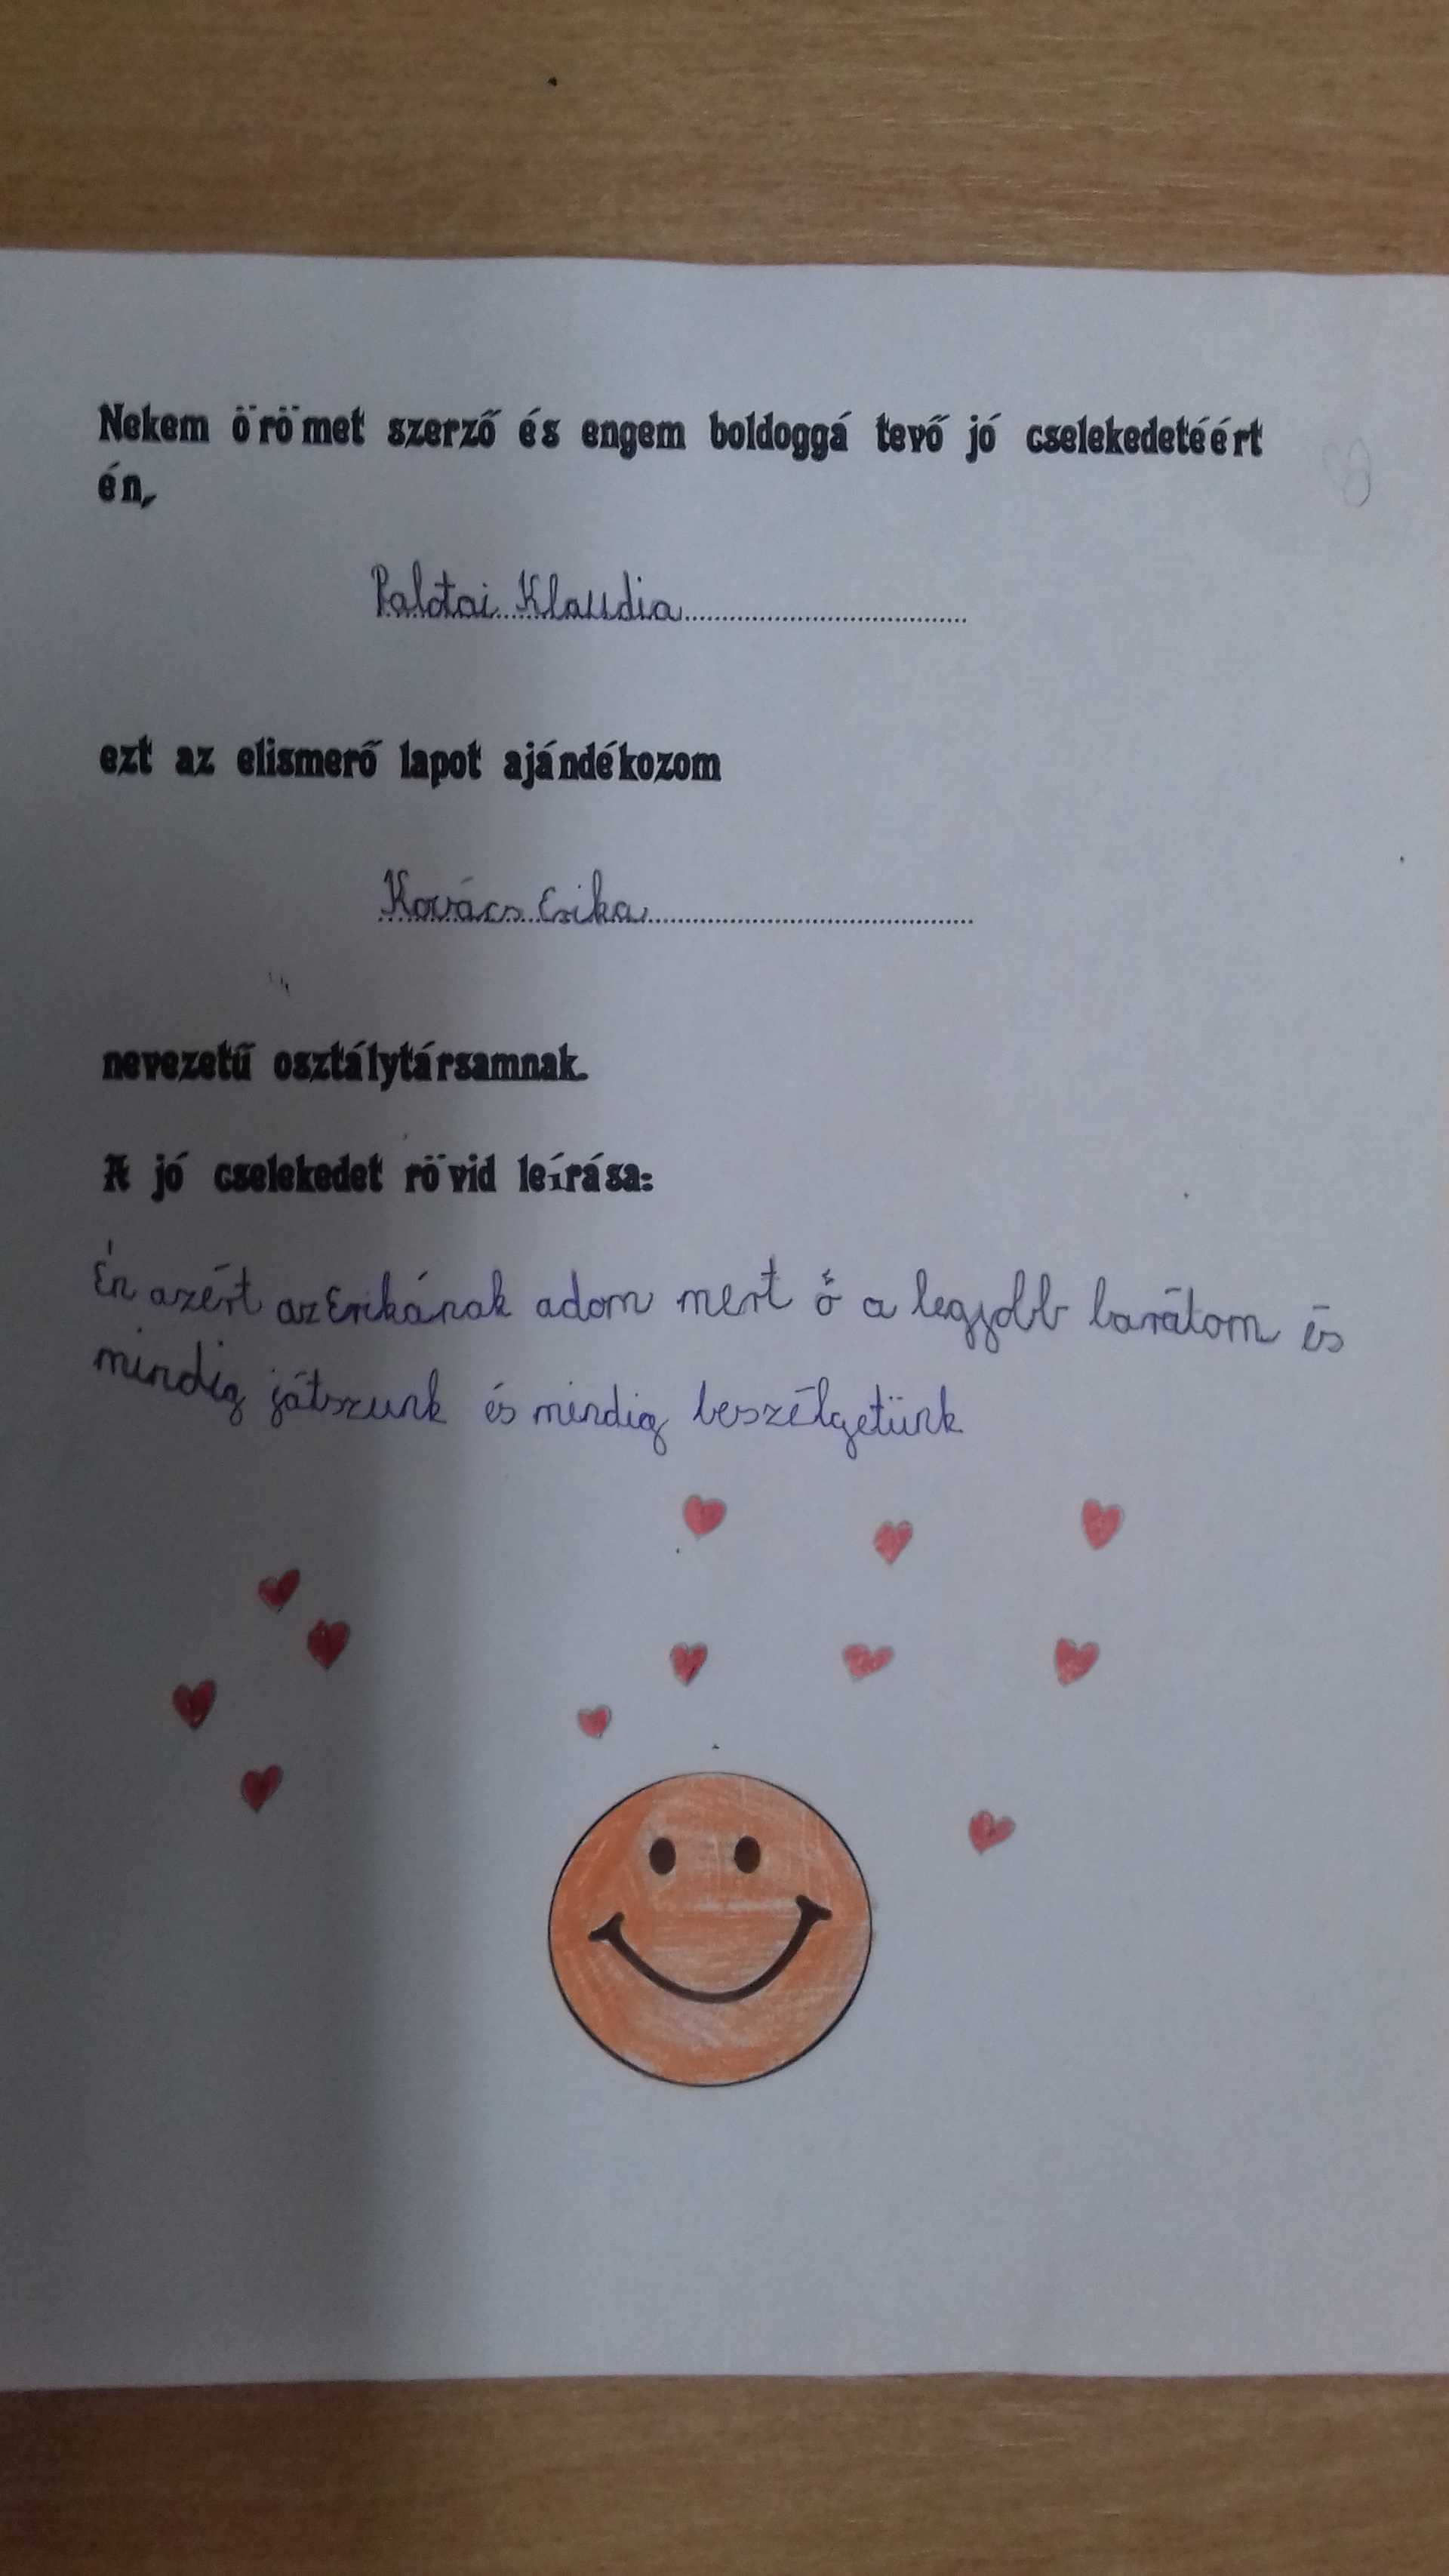 Nekem örömet szerző és engem boldoggá tevő jó cselekedetéért
én,
Palotai Klaudia
ezt az elismerő lapot ajándékozom
Kovács Erika
nevezetű osztálytársamnak.
A jó cselekedet rövid leírása:
Én azért az Erikának adom mert ő a legjobb barátom és
mindig játszunk és mindig beszélgetünk